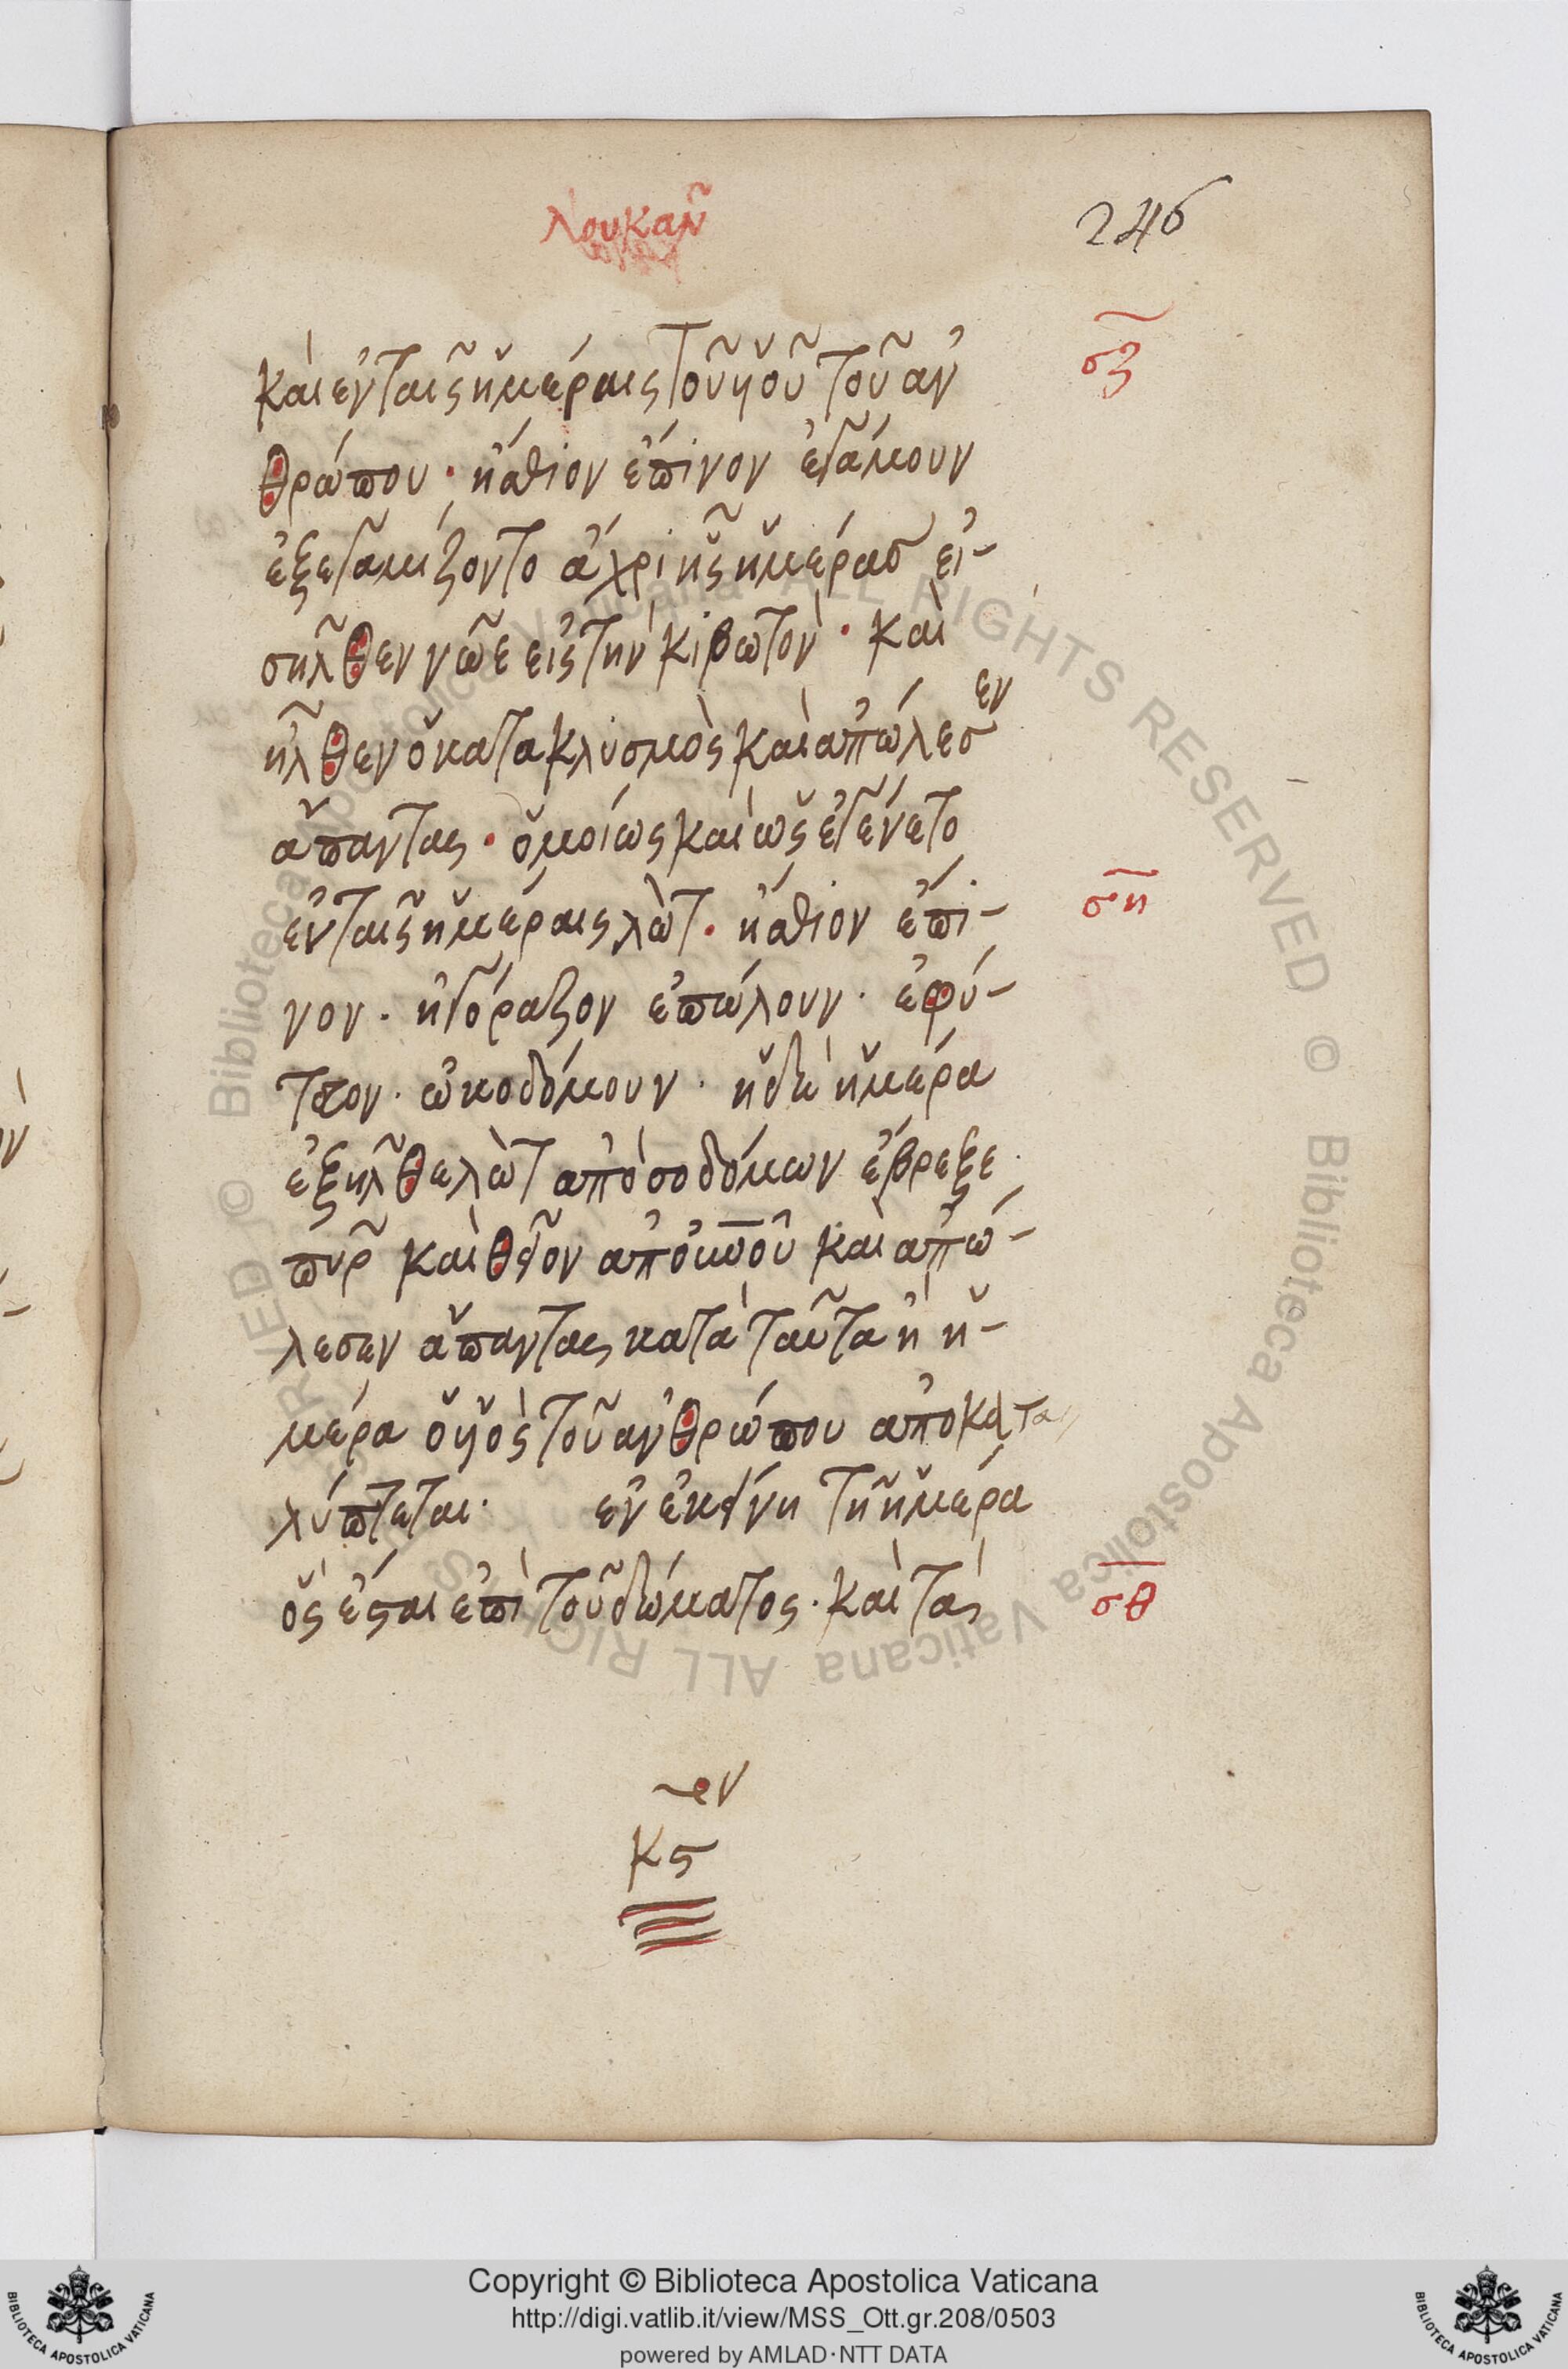 Λουκᾶν
246
καὶ ἐν ταῖς ἡμέραις τοῦ υἱοῦ τοῦ ἀν
σζ
θρώπου · ἤσθιον ἔπινον ἐγάμουν
ἐξεγαμίζοντο ἄχρι ἧς ἡμέρασ εἰ-
σῆλθεν νῶε εἰς τὴν κιβωτὸν · καὶ
ἦλθεν ὁ κατακλυσμὸς καὶ ἀπώλεσεν
ἅπαντας · ὁμοίως καὶ ὡς ἐγένετο
ἐν ταῖς ἡμέραις λὼτ · ἤσθιον ἔπι-
ση
νον · ἠγόραζον ἐπώλουν · ἐφύ-
τευον · ὠκοδόμουν · ἡ δὲ ἡμέρα
ἐξῆλθε λὼτ ἀπὸ σοδόμων ἔβρεξε
πῦρ καὶ θεῖον ἀπὸ οὐνοῦ καὶ ἀπώ-
λεσεν ἅπαντας κατὰ ταῦτα ἡ ἡ-
μέρα ὁ υἱὸς τοῦ ἀνθρώπου ἀποκα
λύπτεται · ἐν ἐκείνη τῆ ἡμέρα
ὃς ἔσται ἐπὶ τοῦ δώματος · καὶ τὰ
σθ
κς
© Biblioteca Apostolica Vaticana ALL RIGHTS RESERVED © Biblioteca Apostolica Vaticana ALL RIGHTS RESERVED
Copyright © Biblioteca Apostolica Vaticana
http://digi.vatlib.it/view/MSS_Ott.gr.208/0503
powered by AMLAD·NTT DATA
BIBLIOTECA APOSTOLICA VATICANA
BIBLIOTECA APOSTOLICA VATICANA